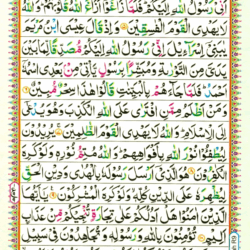 اَنِّىْ رَسُوْلُ اللّٰهِ اِلَيْكُمْ ؕ فَلَمَّا زَاغُوْۤا اَزَاغَ اللّٰهُ قُلُوْبَهُمْ ؕ وَاللّٰهُ
لَا يَهْدِى الْقَوْمَ الْفٰسِقِيْنَ ۝ وَاِذْ قَالَ عِيْسَى ابْنُ مَرْيَمَ
يٰبَنِىْۤ اِسْرَآءِيْلَ اِنِّىْ رَسُوْلُ اللّٰهِ اِلَيْكُمْ مُّصَدِّقًا لِّمَا بَيْنَ
يَدَىَّ مِنَ التَّوْرٰىةِ وَمُبَشِّرًاۢ بِرَسُوْلٍ يَّاْتِىْ مِنْۢ بَعْدِى اسْمُهٗۤ
اَحْمَدُ ؕ فَلَمَّا جَآءَهُمْ بِالْبَيِّنٰتِ قَالُوْا هٰذَا سِحْرٌ مُّبِيْنٌ ۝
وَمَنْ اَظْلَمُ مِمَّنِ افْتَرٰى عَلَى اللّٰهِ الْكَذِبَ وَهُوَ يُدْعٰٓى
اِلَى الْاِسْلَامِ ؕ وَاللّٰهُ لَا يَهْدِى الْقَوْمَ الظّٰلِمِيْنَ ۝ يُرِيْدُوْنَ
لِيُطْفِئُوْا نُوْرَ اللّٰهِ بِاَفْوَاهِهِمْ ؕ وَاللّٰهُ مُتِمُّ نُوْرِهٖ وَلَوْ كَرِهَ
الْكٰفِرُوْنَ ۝ هُوَ الَّذِىْۤ اَرْسَلَ رَسُوْلَهٗ بِالْهُدٰى وَدِيْنِ الْحَقِّ
لِيُظْهِرَهٗ عَلَى الدِّيْنِ كُلِّهٖ وَلَوْ كَرِهَ الْمُشْرِكُوْنَ ۝ يٰۤاَيُّهَا
الَّذِيْنَ اٰمَنُوْا هَلْ اَدُلُّكُمْ عَلٰى تِجَارَةٍ تُنْجِيْكُمْ مِّنْ عَذَابٍ
اَلِيْمٍ ۝ تُؤْمِنُوْنَ بِاللّٰهِ وَرَسُوْلِهٖ وَتُجَاهِدُوْنَ فِىْ سَبِيْلِ